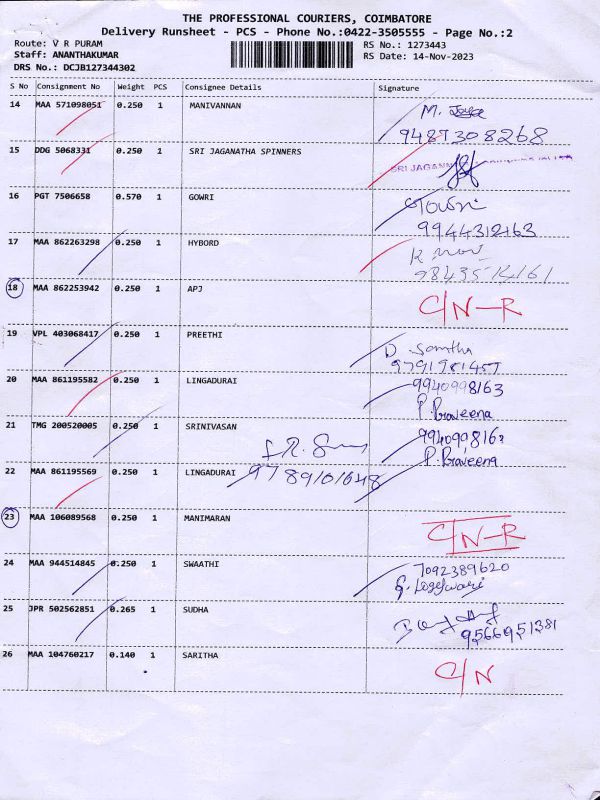 THE PROFESSIONAL COURIERS, COIMBATORE
Delivery Runsheet - PCS - Phone No.:0422-3505555 - Page No.:2
Route: V R PURAM
RS No.: 1273443
Staff: ANANTHAKUMAR
RS Date: 14-Nov-2023
DRS No.: DCJB127344302
S No Consignment No Weight PCS Consignee Details Signature
14 MAA 571098051 0.250 1 MANIVANNAN M.
9487308268
15 DDG 5068331 0.250 1 SRI JAGANATHA SPINNERS
SRI JAGANN
16 PGT 7506658 0.570 1 GOWRI
9944312163
17 MAA 862263298 0.250 1 HYBORD
18 MAA 862253942 0.250 1 APJ C/N-R
19 VPL 403068417 0.250 1 PREETHI D
9791981457
20 MAA 861195582 0.250 1 LINGADURAI 9940998163
P. Praveena
21 TMG 200520005 0.250 1 SRINIVASAN 9940998163
P. Praveena
22 MAA 861195569 0.250 1 LINGADURAI 9789101648
23 MAA 106089568 0.250 1 MANIMARAN C/N-R
24 MAA 944514845 0.250 1 SWAATHI 7092389620
25 JPR 502562851 0.265 1 SUDHA
9566951381
26 MAA 104760217 0.140 1 SARITHA C/N